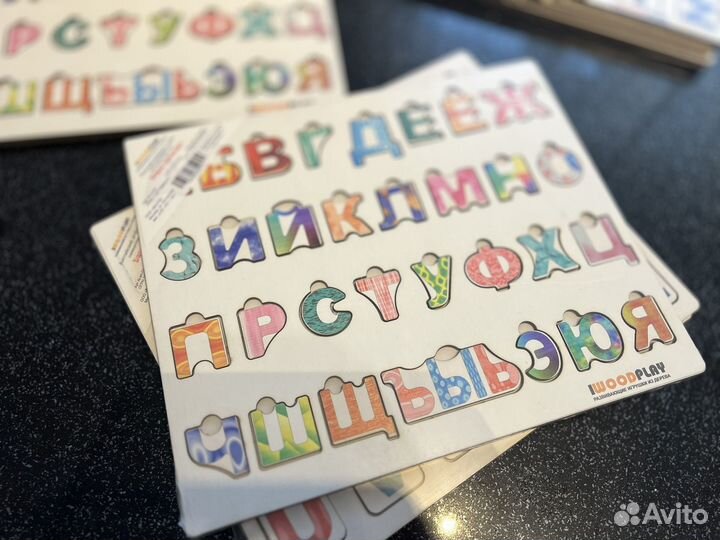 Р С Т У Ф Х Ц
Щ Ъ Ы Ь Э Ю Я
Б В Г Д Е Ё Ж
З И Й К Л М Н О
П Р С Т У Ф Х Ц
Ч Ш Щ Ъ Ы Ь Э Ю Я
IWOODPLAY
РАЗВИВАЮЩИЕ ИГРУШКИ ИЗ ДЕРЕВА
Avito